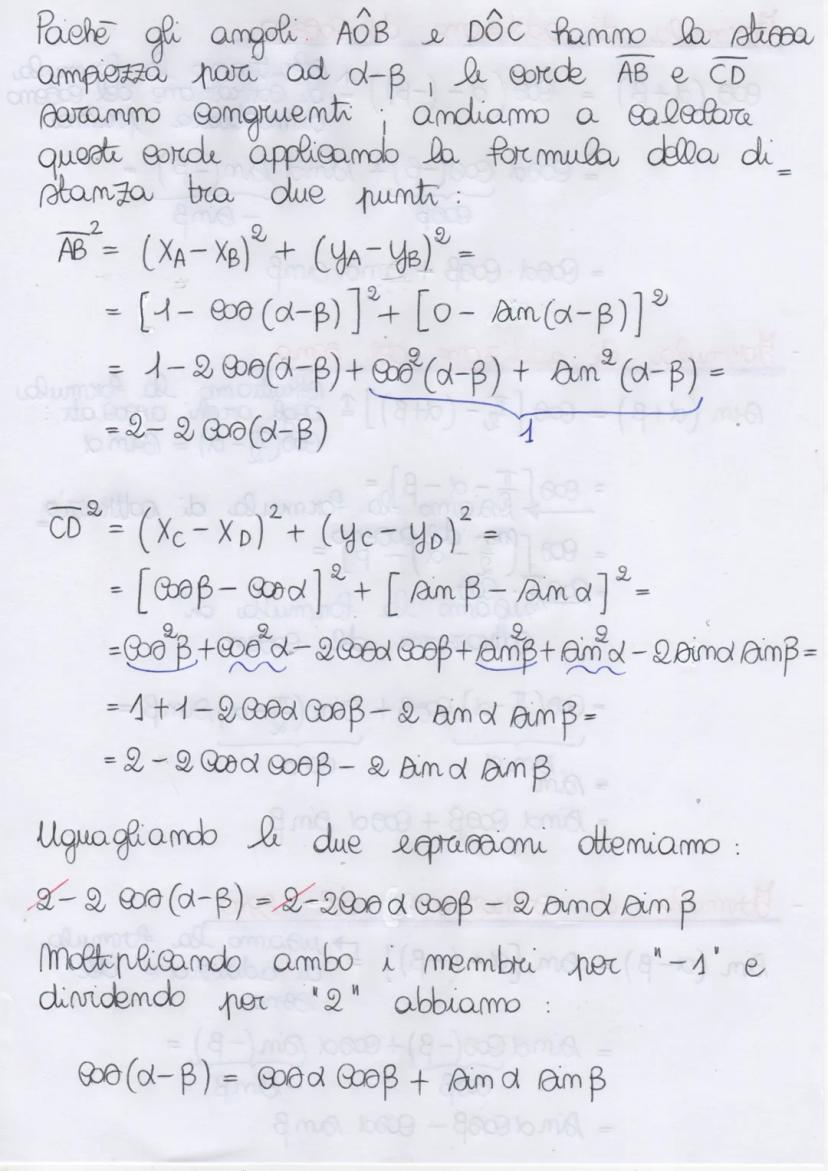 Poiché gli angoli AÔB e DÔC hanno la stessa
ampiezza pari ad α-β, le corde AB e CD
saranno congruenti; andiamo a calcolare
queste corde applicando la formula della di=
stanza tra due punti:
AB² = (x_A - x_B)² + (y_A - y_B)² =
= [1 - cos(α-β)]² + [0 - sin(α-β)]²
= 1 - 2 cos(α-β) + cos²(α-β) + sin²(α-β) =
= 2 - 2 cos(α-β)
1
CD² = (x_C - x_D)² + (y_C - y_D)² =
= [cosβ - cosα]² + [sinβ - sinα]² =
= cos²β + cos²α - 2cosα cosβ + sin²β + sin²α - 2sinα sinβ =
= 1 + 1 - 2cosα cosβ - 2 sinα sinβ =
= 2 - 2cosα cosβ - 2 sinα sinβ
Uguagliando le due espressioni otteniamo:
2 - 2 cos(α-β) = 2 - 2cosα cosβ - 2 sinα sinβ
Moltiplicando ambo i membri per "-1" e
dividendo per "2" abbiamo:
cos(α-β) = cosα cosβ + sinα sinβ